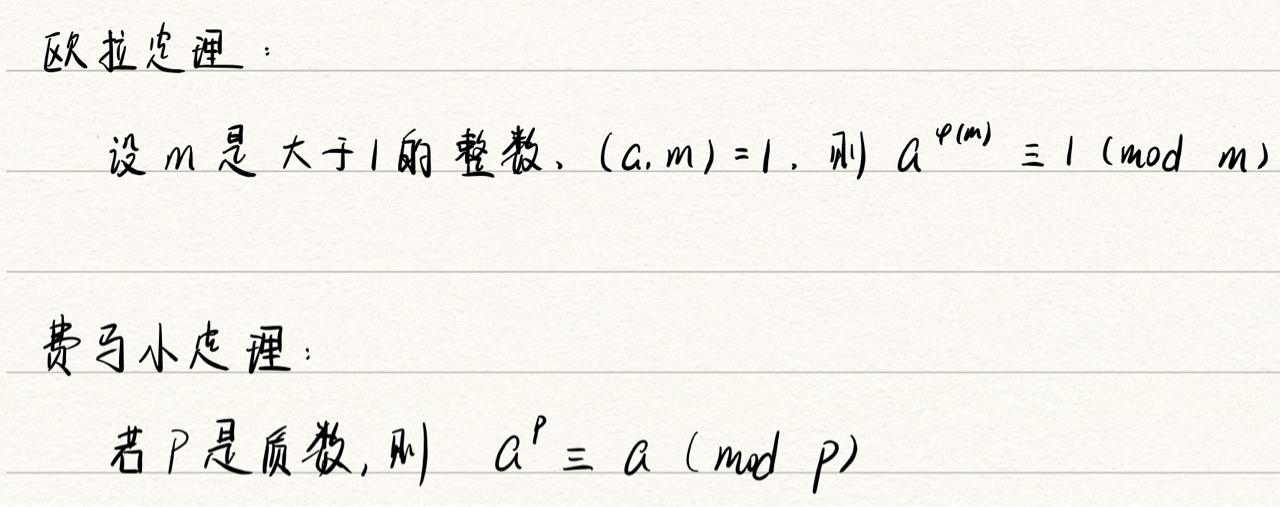 欧拉定理：
设 m 是 大于 1 的 整数、(a, m) = 1, 则 a^φ(m) ≡ 1 (mod m)
费马小定理：
若 P 是质数, 则 a^p ≡ a (mod p)